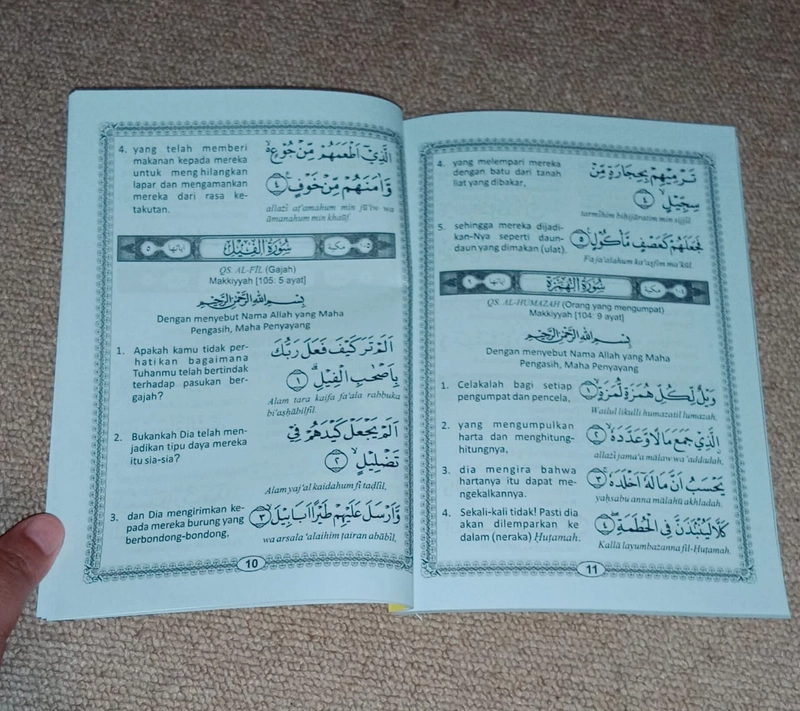 4. yang telah memberi
makanan kepada mereka
untuk menghilangkan
lapar dan mengamankan
mereka dari rasa ke-
takutan.
الَّذِيْٓ اَطْعَمَهُمْ مِّنْ جُوْعٍ ەۙ
وَّاٰمَنَهُمْ مِّنْ خَوْفٍ ࣖ ٤
allażī aṭ'amahum min jū'iw wa
āmanahum min khaūf.
اياتها ٥ سُوْرَةُ الْفِيْلِ مكية ١٠٥
QS. AL-FĪL (Gajah)
Makkiyyah [105: 5 ayat]
بِسْمِ اللّٰهِ الرَّحْمٰنِ الرَّحِيْمِ
Dengan menyebut Nama Allah yang Maha
Pengasih, Maha Penyayang
1. Apakah kamu tidak per-
hatikan bagaimana
Tuhanmu telah bertindak
terhadap pasukan ber-
gajah?
اَلَمْ تَرَ كَيْفَ فَعَلَ رَبُّكَ
بِاَصْحٰبِ الْفِيْلِۗ ١
Alam tara kaifa fa'ala rabbuka
bi'aṣḥābilfīl.
2. Bukankah Dia telah men-
jadikan tipu daya mereka
itu sia-sia?
اَلَمْ يَجْعَلْ كَيْدَهُمْ فِيْ
تَضْلِيْلٍۙ ٢
Alam yaj'al kaidahum fī taḍlīl,
3. dan Dia mengirimkan ke-
pada mereka burung yang
berbondong-bondong,
وَّاَرْسَلَ عَلَيْهِمْ طَيْرًا اَبَابِيْلَۙ ٣
wa arsala 'alaihim ṭairan abābīl,
10
4. yang melempari mereka
dengan batu dari tanah
liat yang dibakar,
تَرْمِيْهِمْ بِحِجَارَةٍ مِّنْ
سِجِّيْلٍۙ ٤
tarmīhim biḥijāratim min sijjīl
5. sehingga mereka dijadi-
kan-Nya seperti daun-
daun yang dimakan (ulat).
فَجَعَلَهُمْ كَعَصْفٍ مَّأْكُوْلٍ ࣖ ٥
Faja'alahum ka'aṣfim ma'kūl.
اياتها ٩ سُوْرَةُ الْهُمَزَةِ مكية ١٠٤
QS. AL-HUMAZAH (Orang yang mengumpat)
Makkiyyah [104: 9 ayat]
بِسْمِ اللّٰهِ الرَّحْمٰنِ الرَّحِيْمِ
Dengan menyebut Nama Allah yang Maha
Pengasih, Maha Penyayang
1. Celakalah bagi setiap
pengumpat dan pencela,
وَيْلٌ لِّكُلِّ هُمَزَةٍ لُّمَزَةٍۙ ١
Wailul likulli humazatil lumazah.
2. yang mengumpulkan
harta dan menghitung-
hitungnya,
ۨالَّذِيْ جَمَعَ مَالًا وَّعَدَّدَهٗۙ ٢
allażī jama'a mālaw wa 'addadah.
3. dia mengira bahwa
hartanya itu dapat me-
ngekalkannya.
يَحْسَبُ اَنَّ مَالَهٗٓ اَخْلَدَهٗۚ ٣
yaḥsabu anna mālahū akhladah.
4. Sekali-kali tidak! Pasti dia
akan dilemparkan ke
dalam (neraka) Ḥuṭamah.
كَلَّا لَيُنْۢبَذَنَّ فِى الْحُطَمَةِۖ ٤
Kallā layumbażanna fil-Ḥuṭamah.
11